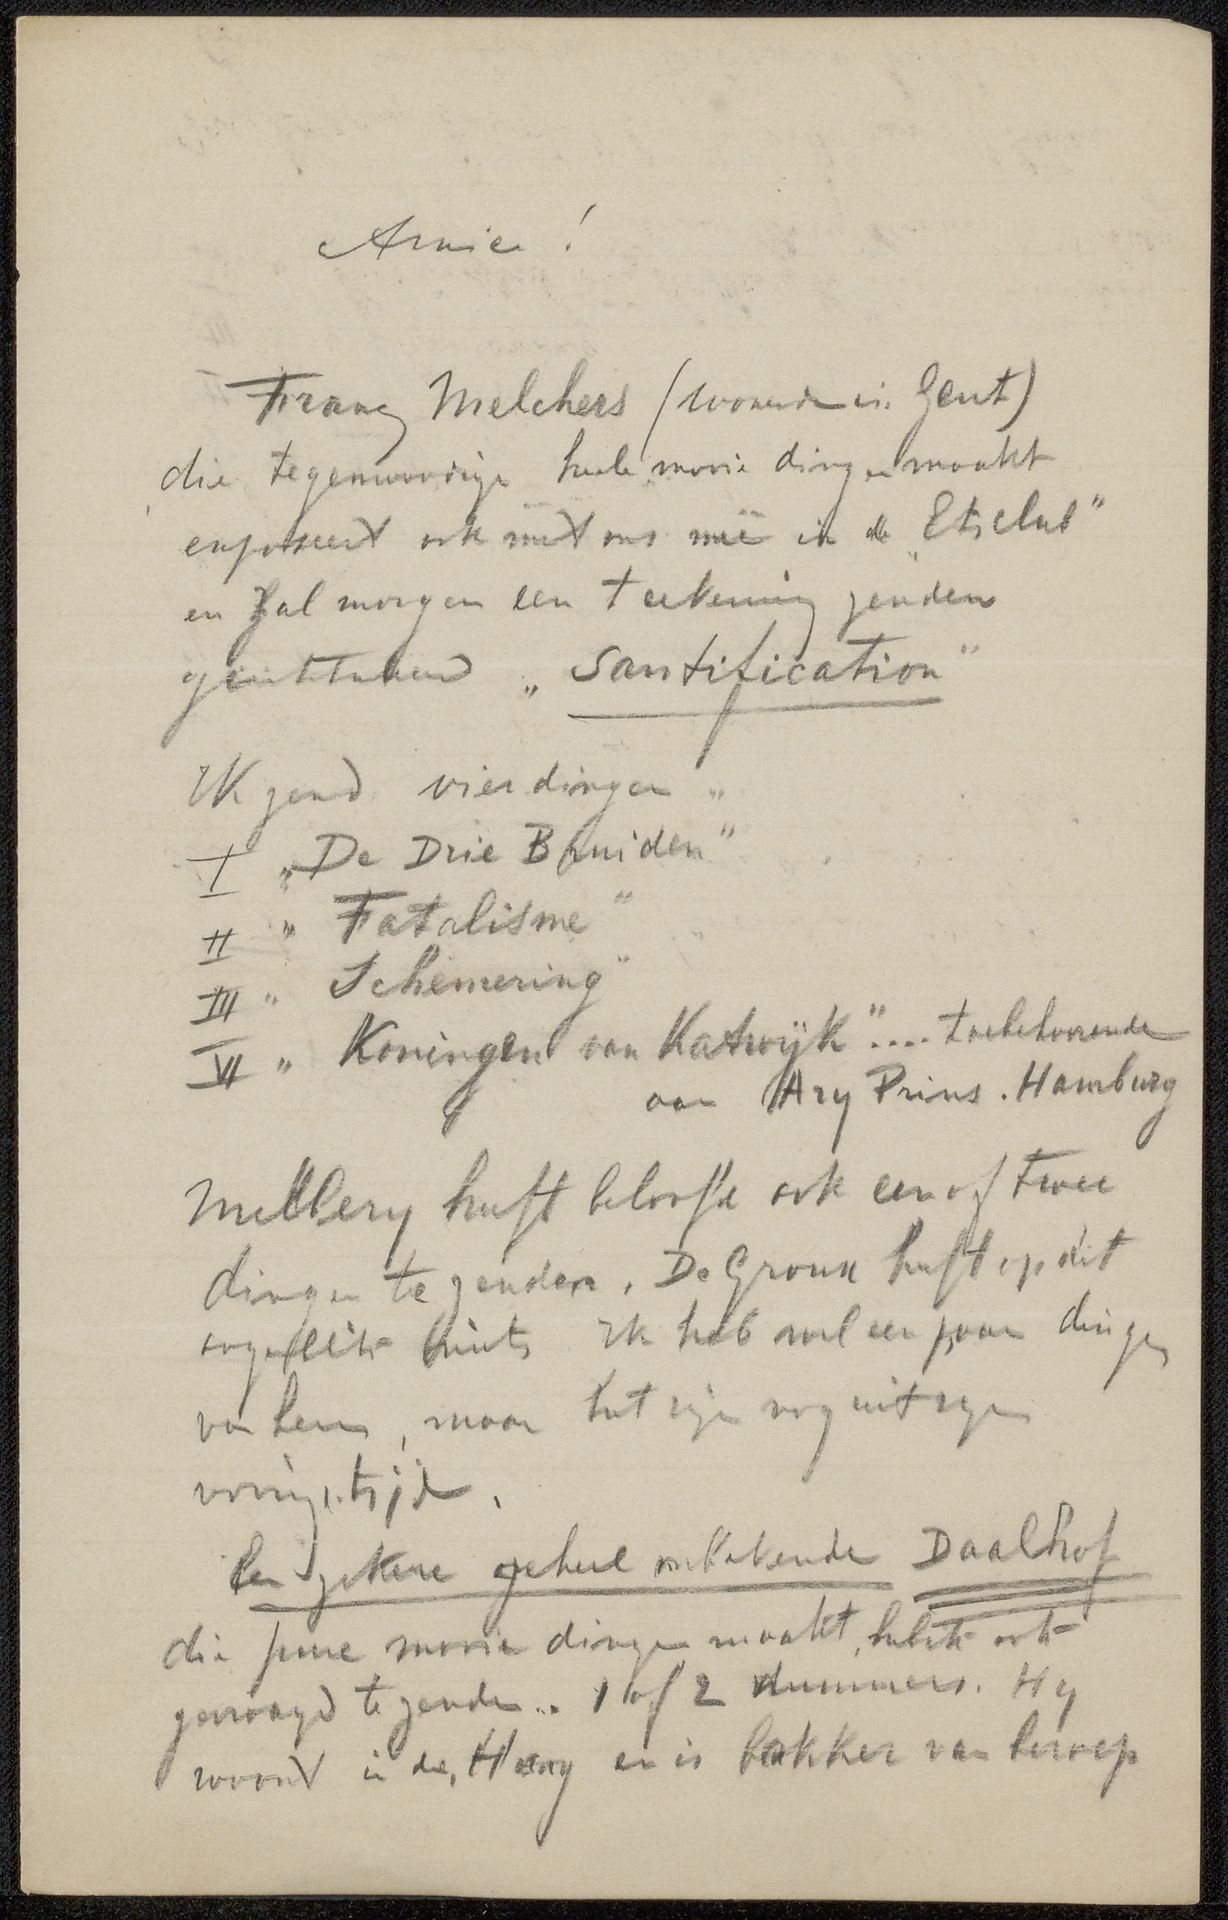 Amice!
Franz Melchers (wonende in Gent)
die tegenwoordige heele mooie dingen maakt
exposeert ook met ons meê in de „Etsclub"
en zal morgen een teekening zenden
geintituleerd „Santification"
Ik zend vier dingen „
I „De Drie Bruiden"
II „ Fatalisme"
III „ Schemering"
VI „ Koningen van Katwijk".... toebehoorende
aan Ary Prins. Hamburg
Mellery heeft beloofd ook een of twee
dingen te zenden. De Groux heeft op dit
oogenblik niets Ik heb wel een paar dingen
van hem, maar het zijn nog uit zijn
vorige tijd.
Een zekere geheel onbekende Daalhof
die pure mooie dingen maakt, heb ik ook
gevraagd te zenden.. 1 of 2 nummers. Hy
woont in de Haag en is bakker van beroep